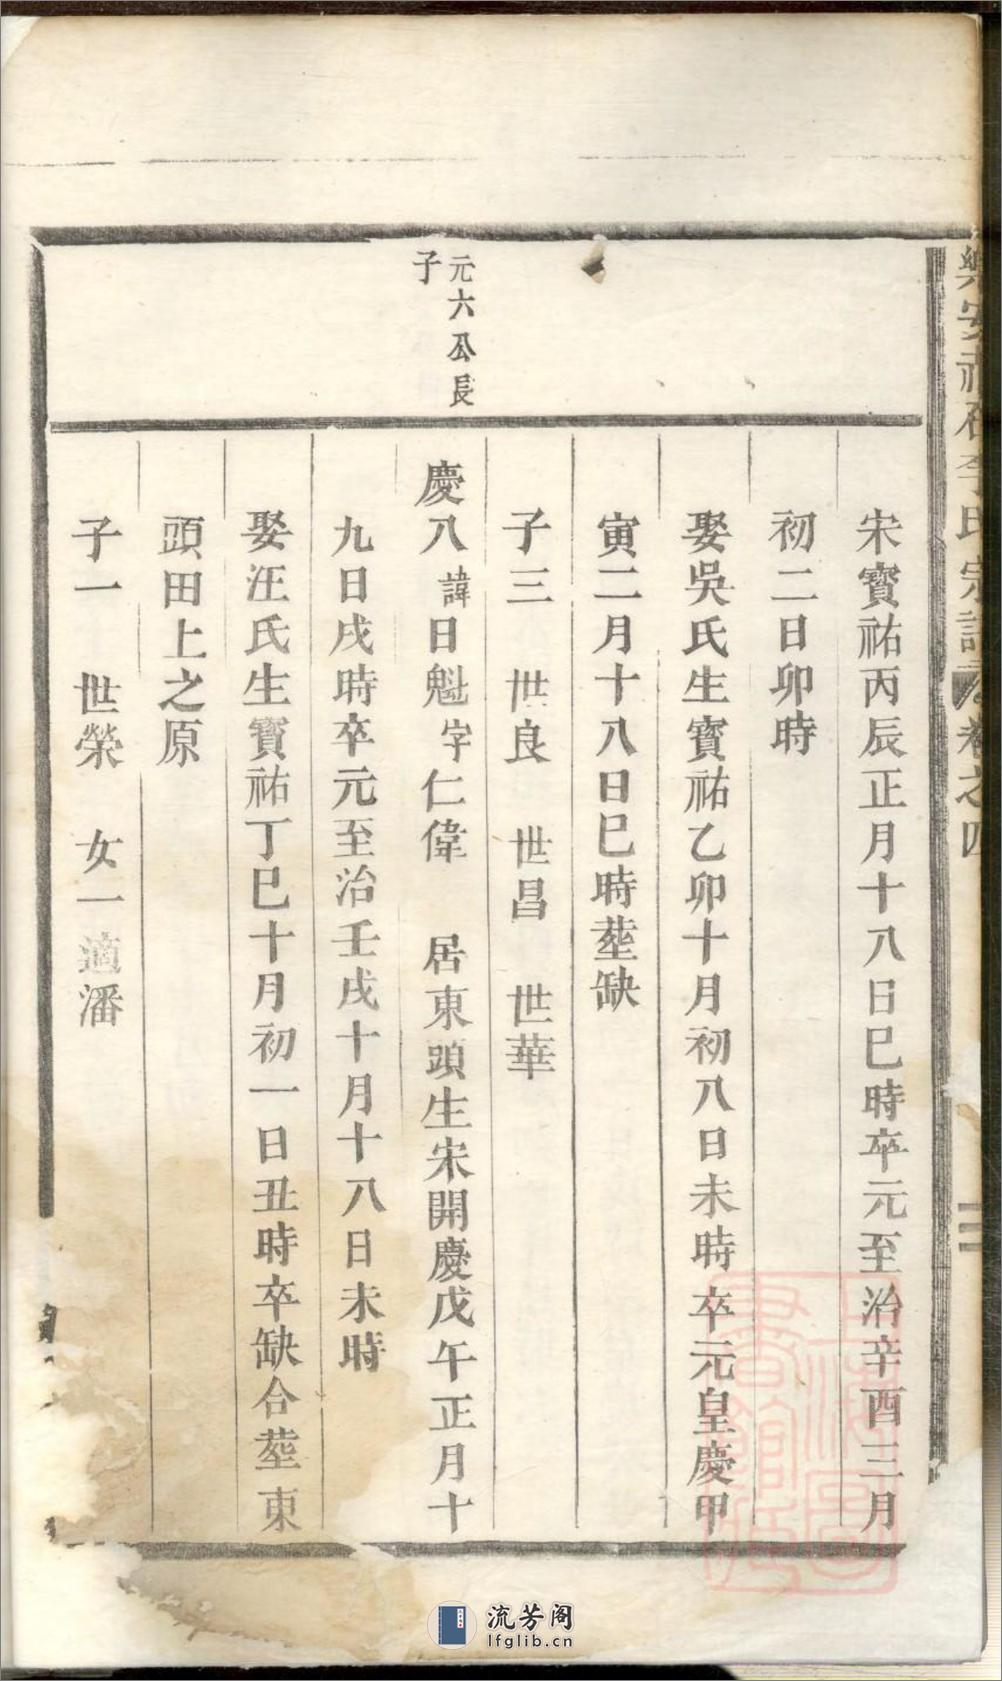 宋寳祐丙辰正月十八日巳時卒元至治辛酉三月
初二日卯時
娶吳氏生寳祐乙卯十月初八日未時卒元皇慶甲
寅二月十八日巳時塟缺
子三　世良　世昌　世華
元六公長
子
慶八諱日魁字仁偉　居東頭生宋開慶戊午正月十
九日戌時卒元至治壬戌十月十八日未時
娶汪氏生寳祐丁巳十月初一日丑時卒缺合塟東
頭田上之原
子一　世榮　女一適潘
上海圖書館藏
流芳阁
lfglib.cn